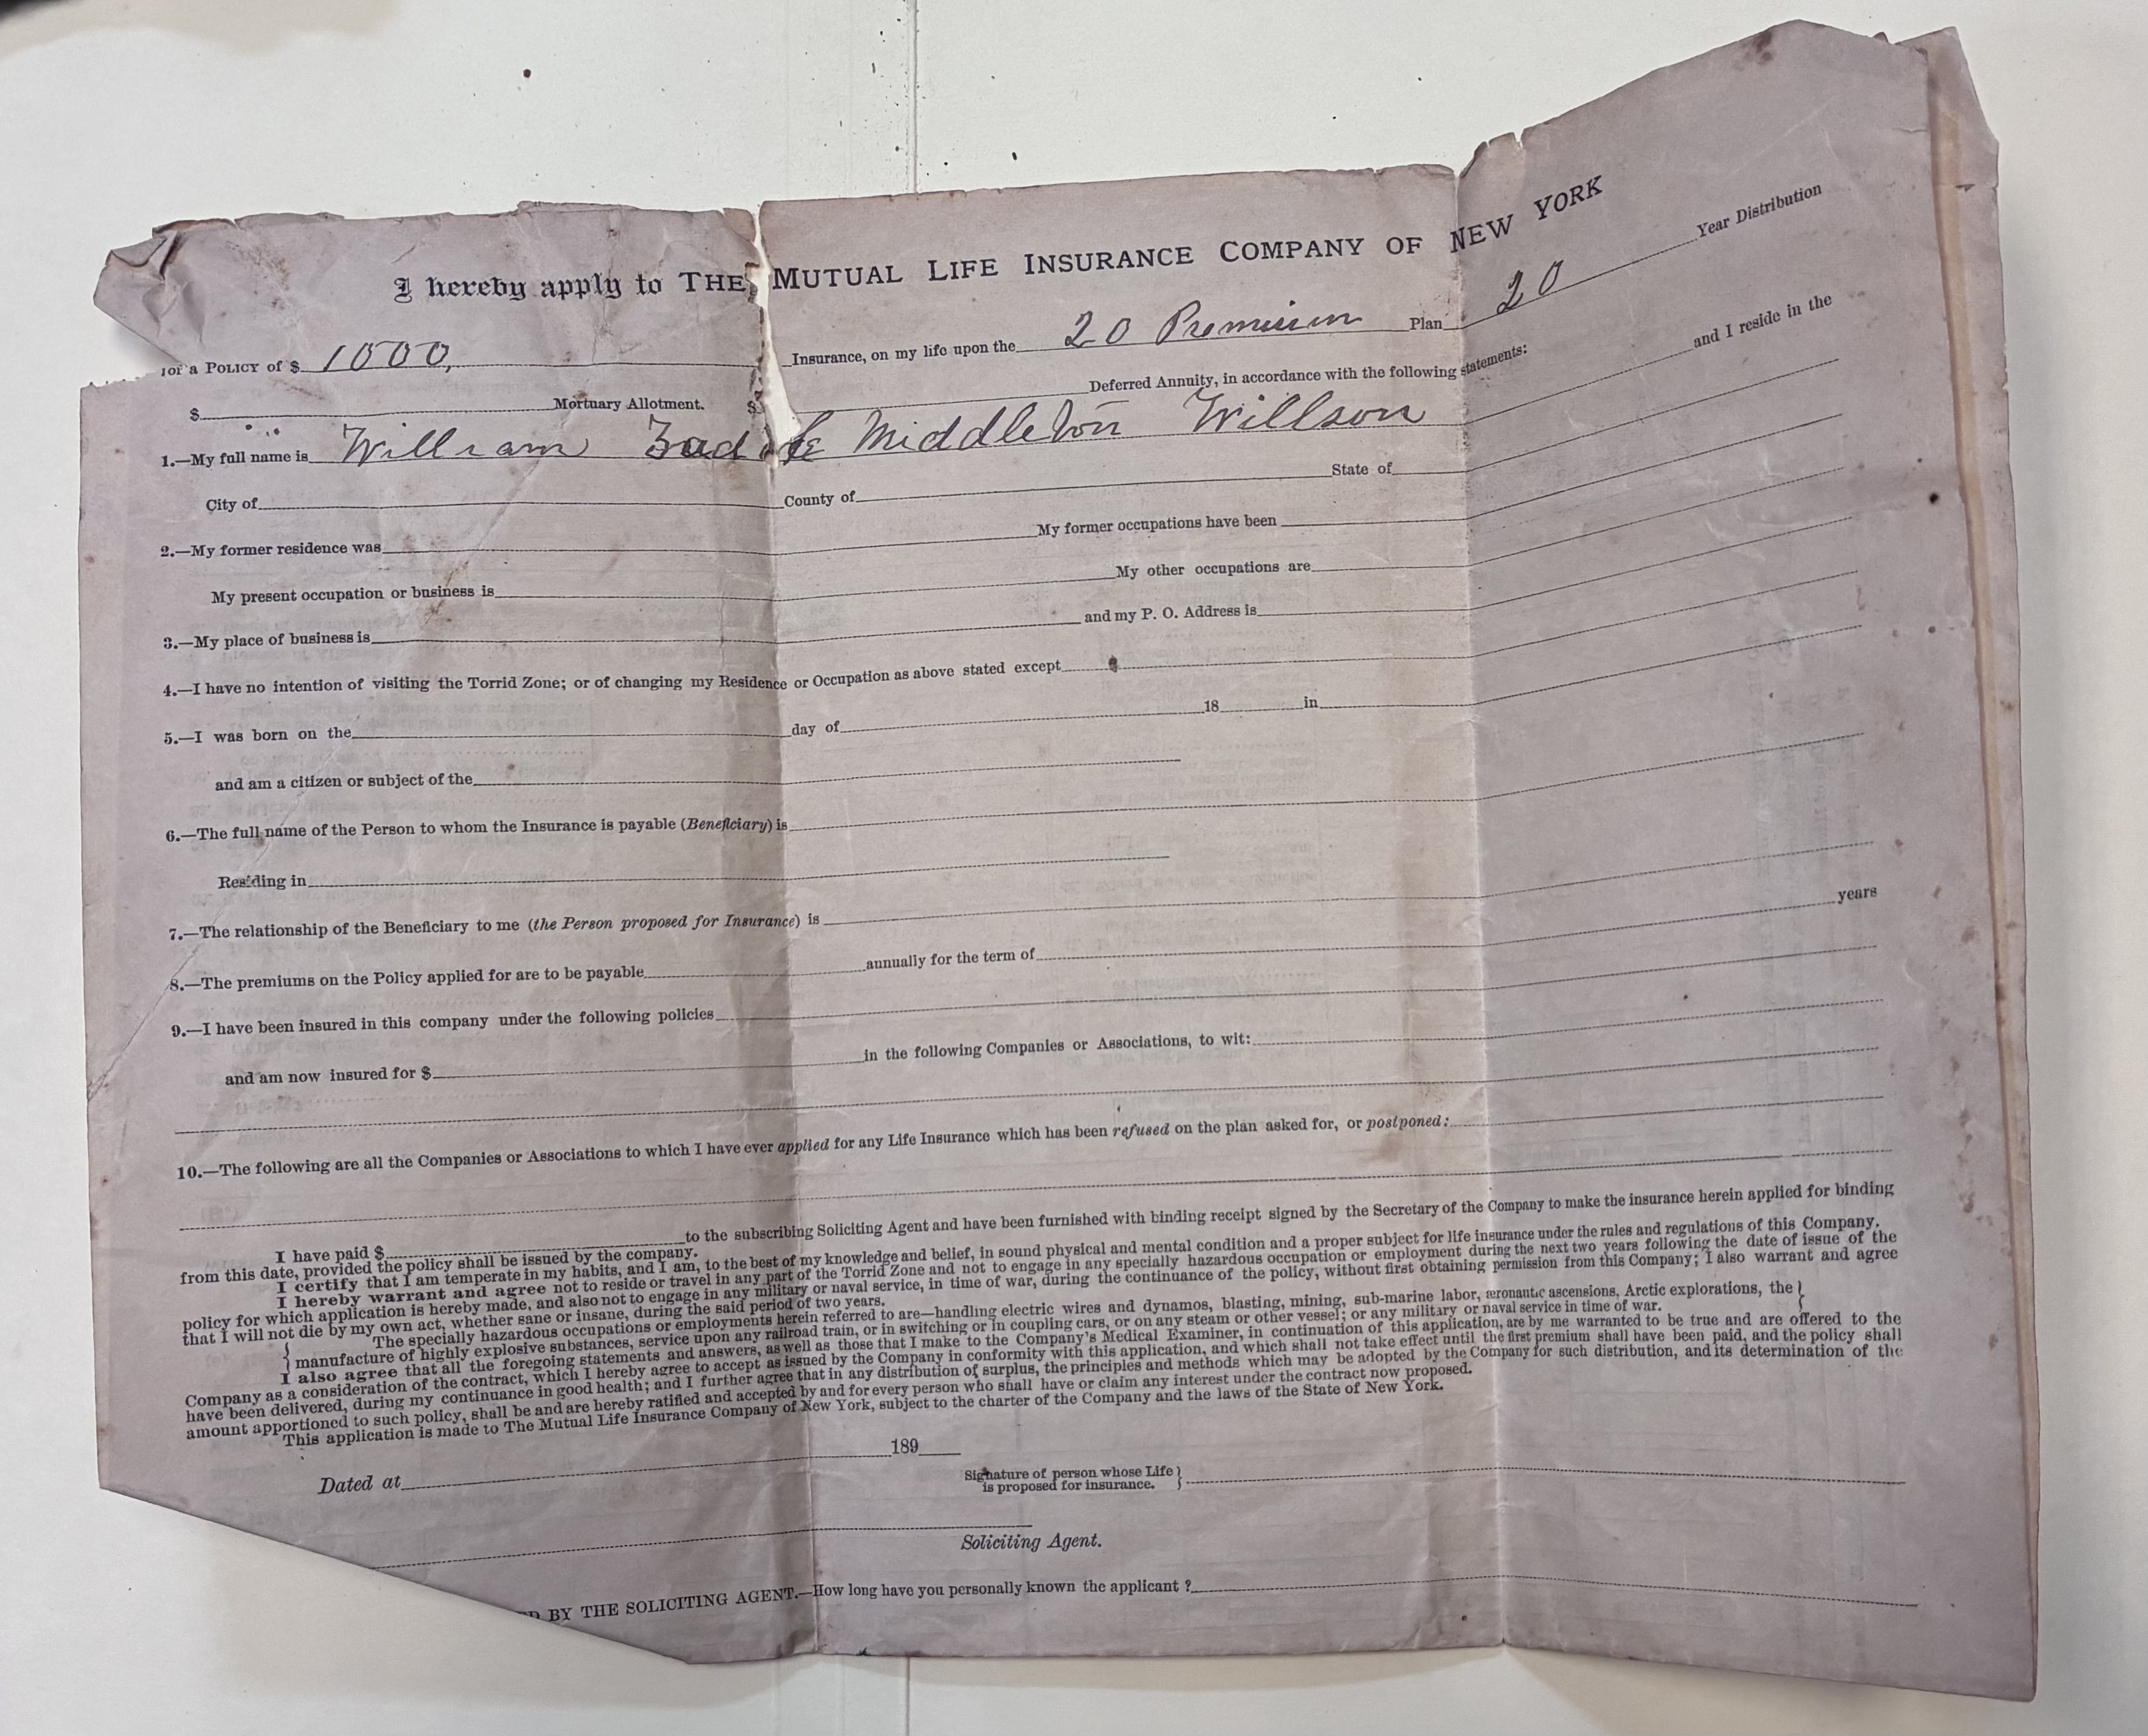 I hereby apply to THE MUTUAL LIFE INSURANCE COMPANY OF NEW YORK
for a POLICY of $ 1000, Insurance, on my life upon the 20 Premium Plan 20 Year Distribution
$ Mortuary Allotment. $ Deferred Annuity, in accordance with the following statements:
1.—My full name is William Middleton Willson and I reside in the
City of County of State of
2.—My former residence was My former occupations have been
My present occupation or business is My other occupations are
3.—My place of business is and my P. O. Address is
4.—I have no intention of visiting the Torrid Zone; or of changing my Residence or Occupation as above stated except
5.—I was born on the day of 18 in
and am a citizen or subject of the
6.—The full name of the Person to whom the Insurance is payable (Beneficiary) is
Residing in
7.—The relationship of the Beneficiary to me (the Person proposed for Insurance) is
8.—The premiums on the Policy applied for are to be payable annually for the term of years
9.—I have been insured in this company under the following policies
and am now insured for $ in the following Companies or Associations, to wit:
10.—The following are all the Companies or Associations to which I have ever applied for any Life Insurance which has been refused on the plan asked for, or postponed:
I have paid $ to the subscribing Soliciting Agent and have been furnished with binding receipt signed by the Secretary of the Company to make the insurance herein applied for binding
from this date, provided the policy shall be issued by the company.
I certify that I am temperate in my habits, and I am, to the best of my knowledge and belief, in sound physical and mental condition and a proper subject for life insurance under the rules and regulations of this Company.
I hereby warrant and agree not to reside or travel in any part of the Torrid Zone and not to engage in any specially hazardous occupation or employment during the next two years following the date of issue of the
policy for which application is hereby made, and also not to engage in any military or naval service, in time of war, during the continuance of the policy, without first obtaining permission from this Company; I also warrant and agree
that I will not die by my own act, whether sane or insane, during the said period of two years.
The specially hazardous occupations or employments herein referred to are—handling electric wires and dynamos, blasting, mining, sub-marine labor, æronautic ascensions, Arctic explorations, the
manufacture of highly explosive substances, service upon any railroad train, or in switching or in coupling cars, or on any steam or other vessel; or any military or naval service in time of war.
I also agree that all the foregoing statements and answers, as well as those that I make to the Company's Medical Examiner, in continuation of this application, are by me warranted to be true and are offered to the
Company as a consideration of the contract, which I hereby agree to accept as issued by the Company in conformity with this application, and which shall not take effect until the first premium shall have been paid, and the policy shall
have been delivered, during my continuance in good health; and I further agree that in any distribution of surplus, the principles and methods which may be adopted by the Company for such distribution, and its determination of the
amount apportioned to such policy, shall be and are hereby ratified and accepted by and for every person who shall have or claim any interest under the contract now proposed.
This application is made to The Mutual Life Insurance Company of New York, subject to the charter of the Company and the laws of the State of New York.
Dated at 189
Signature of person whose Life
is proposed for insurance.
Soliciting Agent.
BY THE SOLICITING AGENT.—How long have you personally known the applicant ?